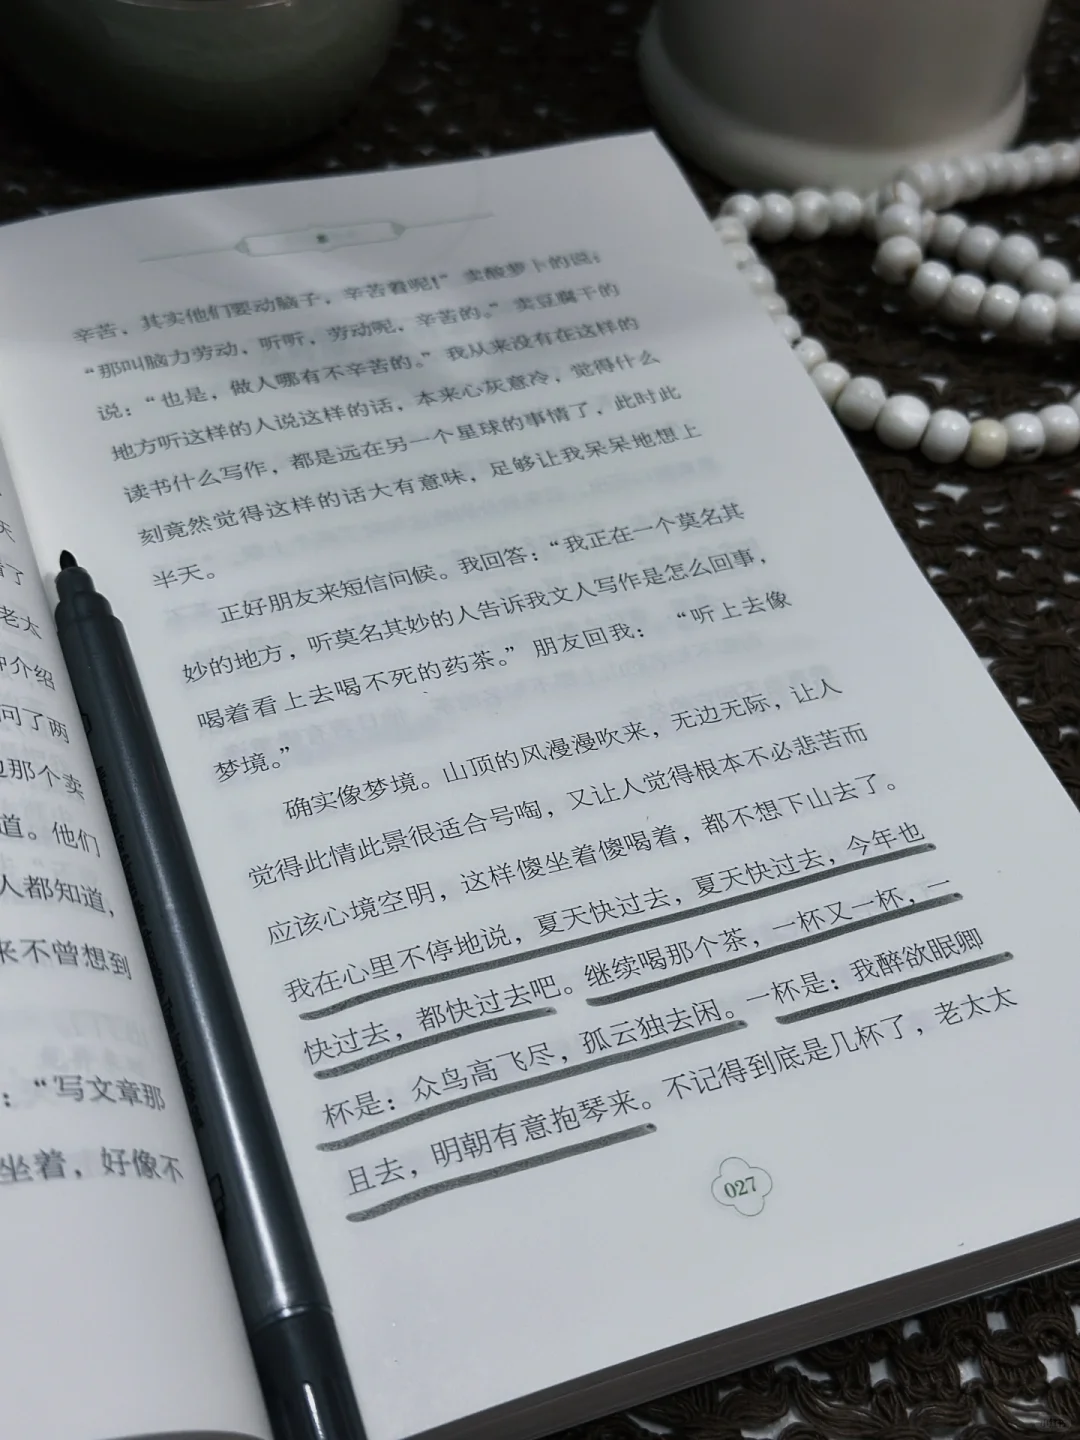 天
着了
老太
介绍
问了两
边那个卖
道。他们
人都知道，
来不曾想到
：“写文章那
坐着，好像不
辛苦，其实他们要动脑子，辛苦着呢！”卖酸萝卜的说：
“那叫脑力劳动，听听，劳动呢，辛苦的。”卖豆腐干的
说：“也是，做人哪有不辛苦的。”我从来没有在这样的
地方听这样的人说这样的话，本来心灰意冷，觉得什么
读书什么写作，都是远在另一个星球的事情了，此时此
刻竟然觉得这样的话大有意味，足够让我呆呆地想上
半天。
正好朋友来短信问候。我回答：“我正在一个莫名其
妙的地方，听莫名其妙的人告诉我文人写作是怎么回事，
喝着看上去喝不死的药茶。”朋友回我：“听上去像
梦境。”
确实像梦境。山顶的风漫漫吹来，无边无际，让人
觉得此情此景很适合号啕，又让人觉得根本不必悲苦而
应该心境空明，这样傻坐着傻喝着，都不想下山去了。
我在心里不停地说，夏天快过去，夏天快过去，今年也
快过去，都快过去吧。继续喝那个茶，一杯又一杯，一
杯是：众鸟高飞尽，孤云独去闲。一杯是：我醉欲眠卿
且去，明朝有意抱琴来。不记得到底是几杯了，老太太
027